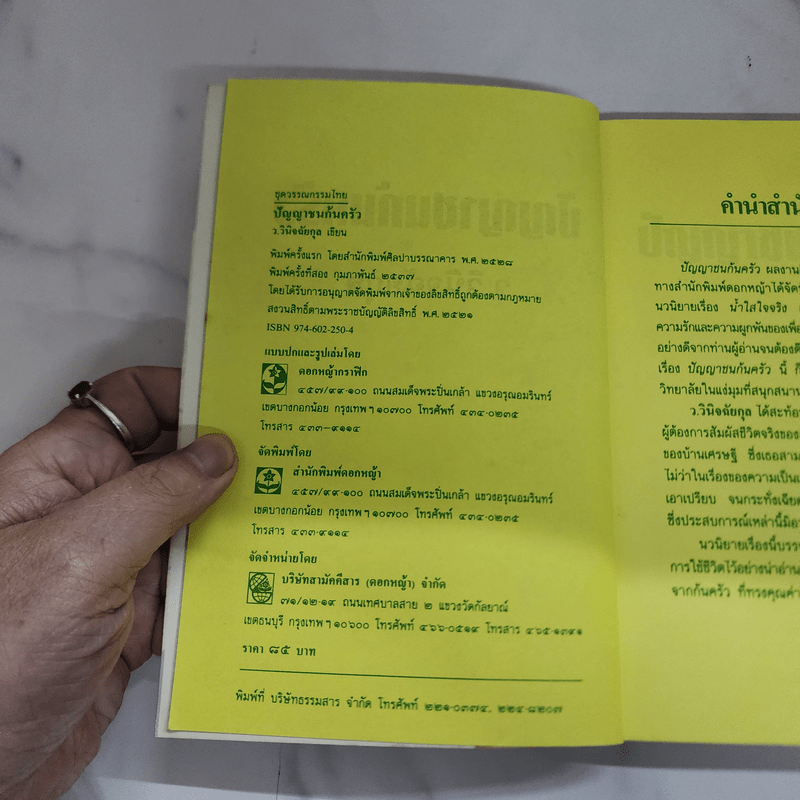 ชุดวรรณกรรมไทย
ปัญญาชนก้นครัว
ว.วินิจฉัยกุล เขียน
พิมพ์ครั้งแรก โดยสำนักพิมพ์ศิลปาบรรณาคาร พ.ศ.๒๕๒๘
พิมพ์ครั้งที่สอง กุมภาพันธ์ ๒๕๓๗
โดยได้รับการอนุญาตจัดพิมพ์จากเจ้าของลิขสิทธิ์ถูกต้องตามกฎหมาย
สงวนสิทธิ์ตามพระราชบัญญัติลิขสิทธิ์ พ.ศ. ๒๕๒๑
ISBN 974-602-250-4
แบบปกและรูปเล่มโดย
ดอกหญ้ากราฟิก
๔๕๗/๙๙-๑๐๐ ถนนสมเด็จพระปิ่นเกล้า แขวงอรุณอมรินทร์
เขตบางกอกน้อย กรุงเทพ ฯ ๑๐๗๐๐ โทรศัพท์ ๔๓๔-๐๒๓๕
โทรสาร ๔๓๓-๙๑๑๔
จัดพิมพ์โดย
สำนักพิมพ์ดอกหญ้า
๔๕๗/๙๙-๑๐๐ ถนนสมเด็จพระปิ่นเกล้า แขวงอรุณอมรินทร์
เขตบางกอกน้อย กรุงเทพ ฯ ๑๐๗๐๐ โทรศัพท์ ๔๓๔-๐๒๓๕
โทรสาร ๔๓๓-๙๑๑๔
จัดจำหน่ายโดย
บริษัทสามัคคีสาร (ดอกหญ้า) จำกัด
๗๑/๑๒-๑๙ ถนนเทศบาลสาย ๒ แขวงวัดกัลยาณ์
เขตธนบุรี กรุงเทพ ฯ ๑๐๖๐๐ โทรศัพท์ ๔๖๖-๐๕๑๙ โทรสาร ๔๖๕-๑๓๙๑
ราคา ๘๕ บาท
พิมพ์ที่ บริษัทธรรมสาร จำกัด โทรศัพท์ ๒๒๑-๐๓๗๔, ๒๒๔-๘๒๐๗
คำนำสำนั
ปัญญาชนก้นครัว ผลงาน
ทางสำนักพิมพ์ดอกหญ้าได้จัด
นวนิยายเรื่อง น้ำใสใจจริง
ความรักและความผูกพันของเพื่
อย่างดีจากท่านผู้อ่านจนต้อง
เรื่อง ปัญญาชนก้นครัว นี้ ก็
วิทยาลัยในแง่มุมที่สนุกสนาน
ว.วินิจฉัยกุล ได้สะท้อ
ผู้ต้องการสัมผัสชีวิตจริงของ
ของบ้านเศรษฐี ซึ่งเธอสาม
ไม่ว่าในเรื่องของความเป็น
เอาเปรียบ จนกระทั่งเฉีย
ซึ่งประสบการณ์เหล่านี้มี
นวนิยายเรื่องนี้บรร
การใช้ชีวิตไว้อย่างน่าอ่าน
จากก้นครัว ที่ทรงคุณค่า